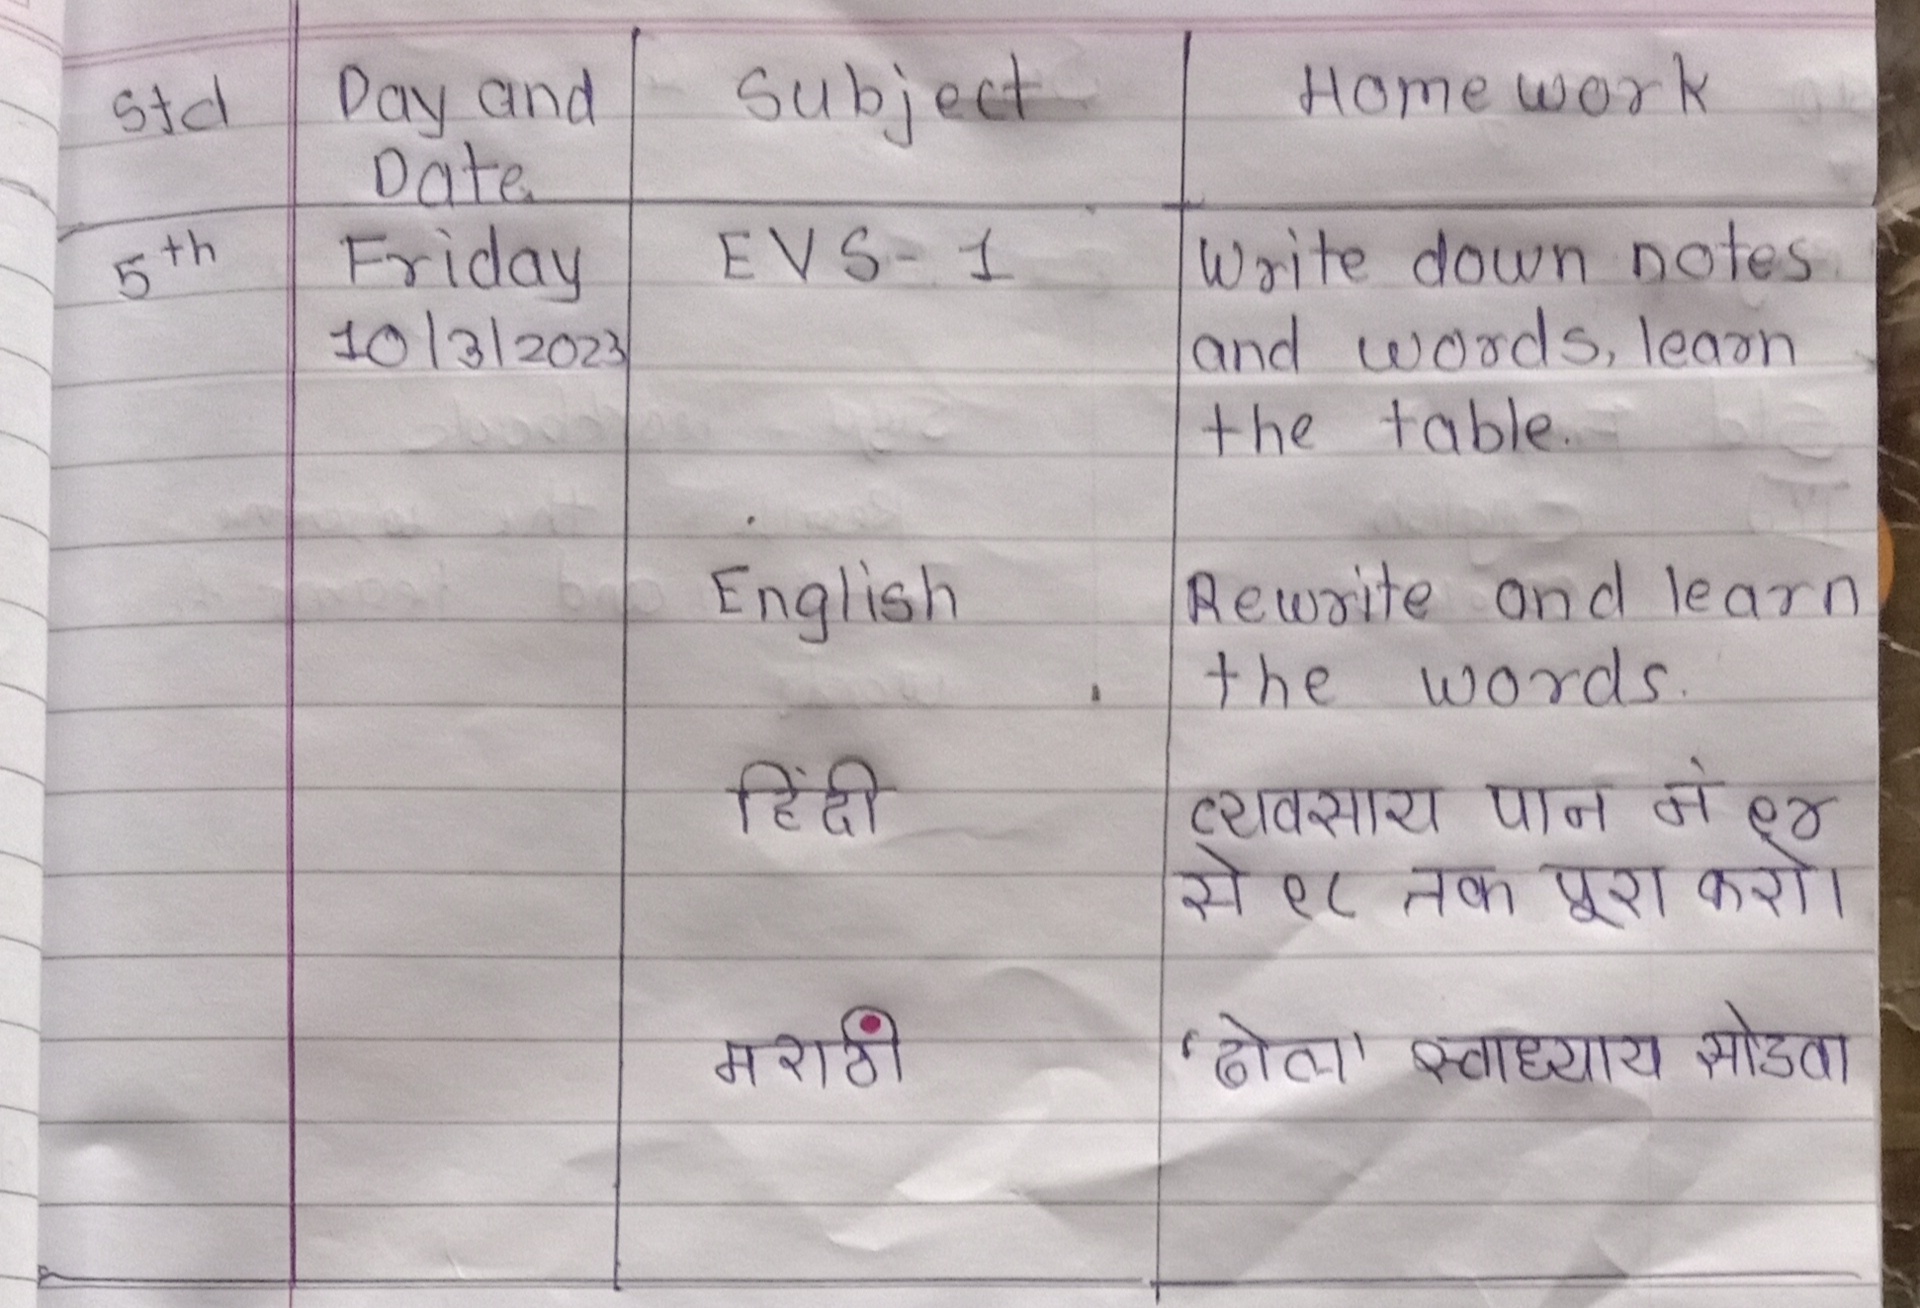 Std Day and Subject Home work
Date
5th Friday EVS-1 Write down notes
10/3/2023 and words, learn
the table.
English Rewrite and learn
the words.
हिंदी व्यवसाय पान नं १४
से १८ तक पूरा करो।
मराठी 'ढोल' स्वाध्याय सोडवा